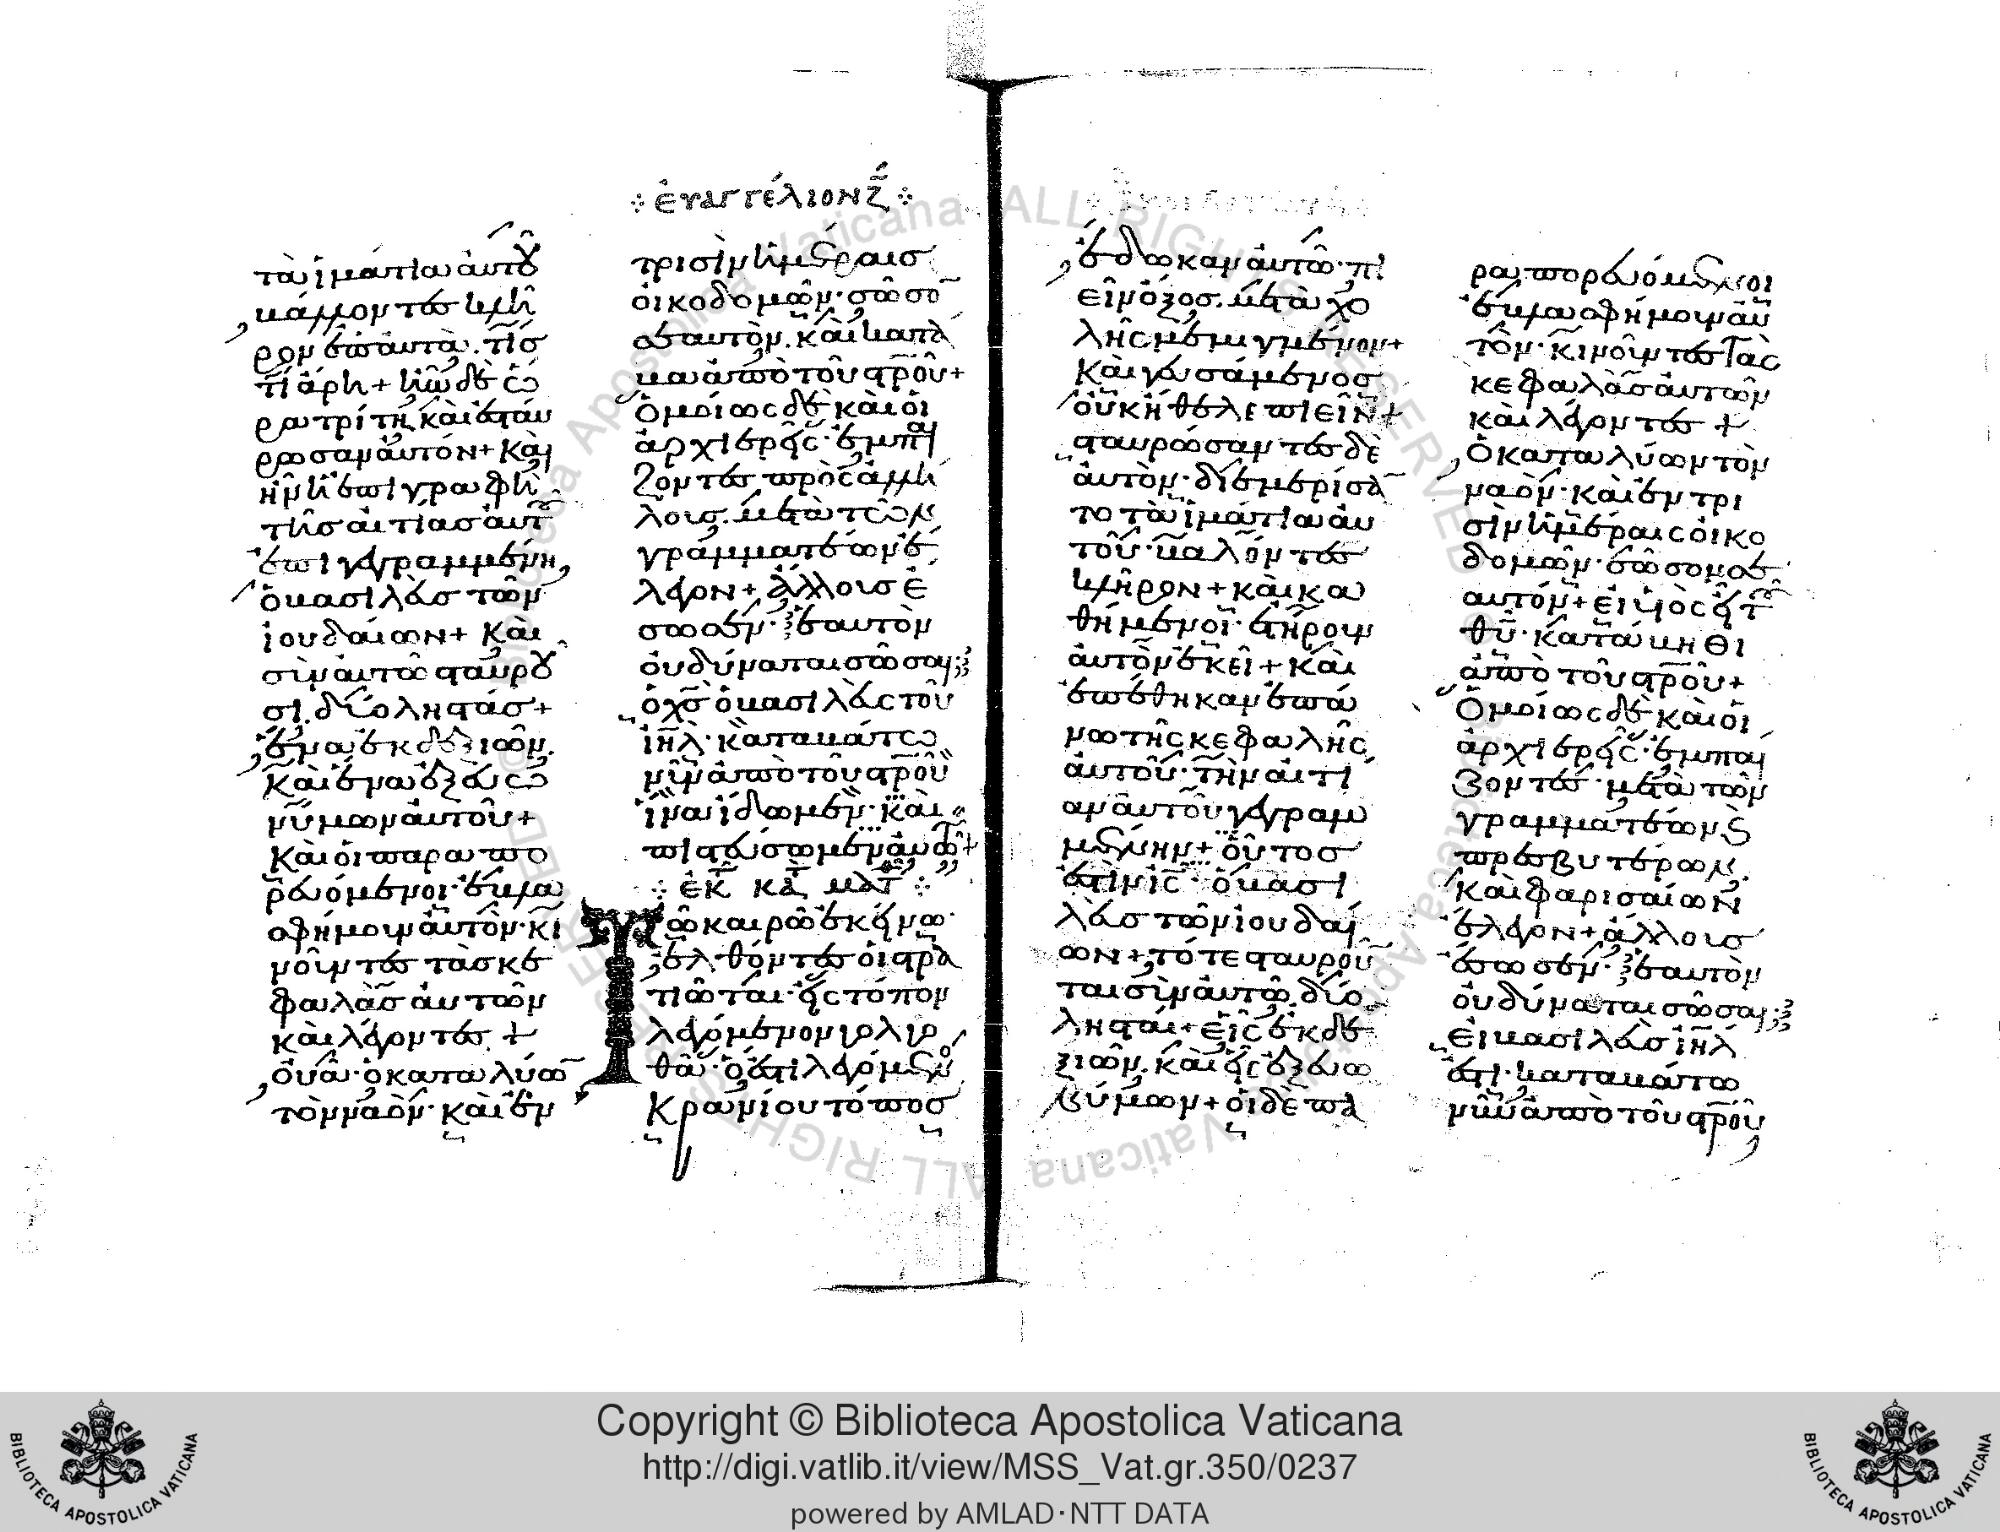 ⁘ ἐυαγγέλιον ζ̄ ⁘
τὰ ἱμάτια αὐτοῦ
βάλλοντες κλῆ
ρον ἐπ' αὐτὰ· τίς
τί ἄρη + ἦν δὲ ὥ
ρα τρίτη καὶ ἐσταύ
ρωσαν αὐτόν + Καὶ
ἦν ἡ ἐπιγραφὴ
τῆς αἰτίας αὐτοῦ
ἐπιγεγραμμένη,
ὁ βασιλεὺς τῶν
ἰουδαίων + Καὶ
σὺν αὐτῶ σταυροῦ
σι δύο ληστάς +
ἕνα ἐκ δεξιῶν.
καὶ ἕνα ἐξ εὐω
νύμων αὐτοῦ +
Καὶ οἱ παραπο
ρευόμενοι ἐβλα
σφήμουν αὐτὸν· κι
νοῦντες τὰς κε
φαλὰς αὐτῶν
καὶ λέγοντες +
ὀυὰ· ὁ καταλύων
τὸν ναὸν· καὶ ἐν
τρισὶν ἡμέραις
οἰκοδομῶν· σῶσο̄
σεαυτὸν· καὶ κατά
βα ἀπὸ τοῦ στ̅ρο̅ῦ +
Ὁμοίως δὲ καὶ οἱ
ἀρχιερεῖς· ἐμπαί
ζοντες πρὸς ἀλλή
λους· μετὰ τῶν
γραμματέων ἔ
λεγον + ἄλλους ἔ
σωσεν· ἑαυτὸν
ὀυ δύναται σῶσαι
ὁ χ̅ς̅ ὁ βασιλεὺς τοῦ
ἰ̅η̅λ̅· καταβάτω
νῦν ἀπὸ τοῦ στ̅ρο̅ῦ
ἵνα ἴδωμεν· καὶ
πιστεύσωμεν αὐτῶ +
⁘ ἐκ κατ ματ ⁘
Τῶ καιρῶ ἐκείνω·
ἐλθόντες οἱ στρα
τιῶται· εἰς τόπον
λεγόμενον γολγο
θᾶ· ὅ ἐστι λεγόμενος
Κρανίου τόπος
ἔδωκαν αὐτῶ· πι
εῖν ὄξος· μετὰ χο
λῆς μεμιγμένον +
Καὶ γευσάμενος
οὐκ ἤθελε πιεῖν +
σταυρώσαντες δὲ
αὐτὸν· διεμερίσᾱ
το τὰ ἱμάτια αὐ
τοῦ· βαλόντες
κλῆρον + καὶ κα
θήμενοι· ἐτήρουν
αὐτὸν ἐκεῖ + καὶ
ἐπέθηκαν ἐπά
νω τῆς κεφαλῆς
αὐτοῦ· τὴν αἰτί
αν αὐτοῦ γεγραμ
μένην + οὗτος
ἐστὶν ι̅ς̅ ὁ βασι
λεὺς τῶν ἰουδαί
ων + τότε σταυροῦ̄
ται σὺν αὐτῶ δύο
λησταί + εἷς ἐκ δε
ξιῶν· καὶ εἷς ἐξ εὐω
νύμων + οἱ δὲ πα
ραπορευόμενοι
ἐβλασφήμουν αὐ
τὸν· κινοῦντες τὰς
κεφαλὰς αὐτῶν
καὶ λέγοντες +
Ὁ καταλύων τὸν
ναὸν· καὶ ἐν τρι
σὶν ἡμέραις οἰκο
δομῶν· σῶσον σε
αυτόν + εἰ υἱὸς εἶ τοῦ
θ̅υ̅· κατάβηθι
ἀπὸ τοῦ στ̅ρο̅ῦ +
Ὁμοίως δὲ καὶ οἱ
ἀρχιερεῖς· ἐμπαί
ζοντες· μετὰ τῶν
γραμματέων, ϗ
πρεσβυτέρων.
Καὶ φαρισαίων
ἔλεγον + ἄλλους
ἔσωσεν· ἑαυτὸν
ὀυ δύναται σῶσαι
εἰ βασιλεὺς ἰ̅η̅λ̅
ἐστι· καταβάτω
νῦν ἀπὸ τοῦ στ̅ρο̅ῦ
Copyright © Biblioteca Apostolica Vaticana
http://digi.vatlib.it/view/MSS_Vat.gr.350/0237
powered by AMLAD·NTT DATA
BIBLIOTECA APOSTOLICA VATICANA
BIBLIOTECA APOSTOLICA VATICANA